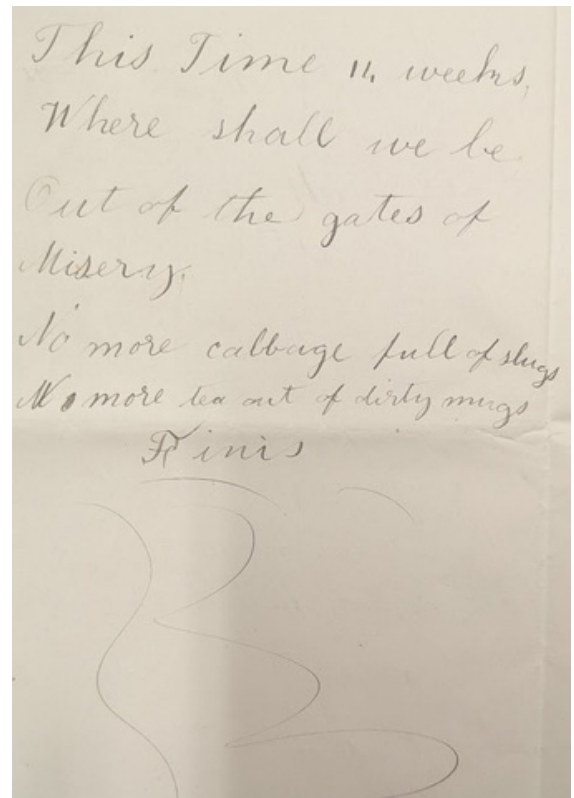 This Time 11. weeks,
Where shall we be
Out of the gates of
Misery.
No more cabbage full of slugs
No more tea out of dirty mugs
Finis